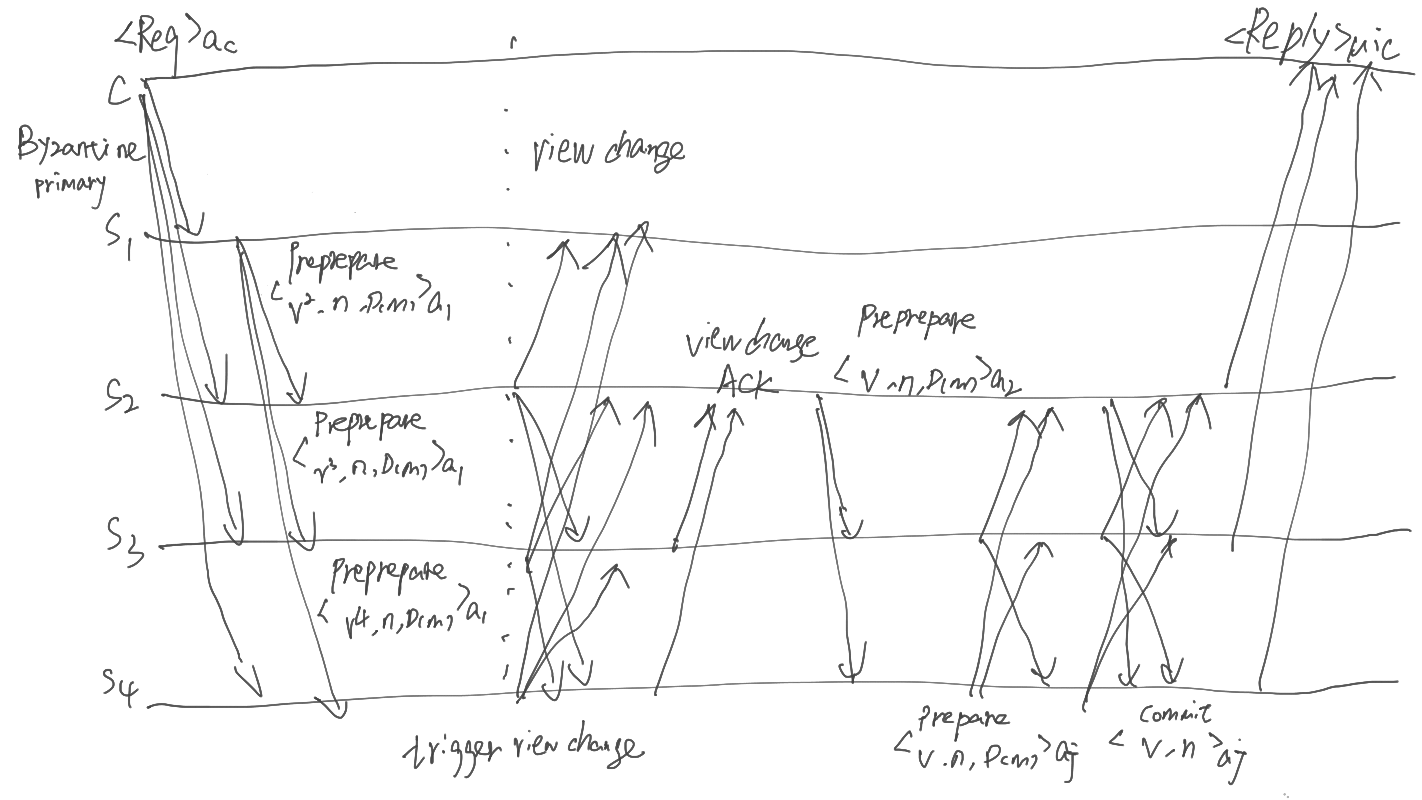 <Req>ac
<Reply>μic
C
Byzantine
primary
view change
S1
Preprepare
<v², n, D(m)>a1
view change
ACK
Preprepare
<v, n, D(m)>a2
S2
Preprepare
<v³, n, D(m)>a1
S3
Preprepare
<v4, n, D(m)>a1
S4
trigger view change
Prepare
<v, n, D(m)>aj
Commit
<v, n>aj